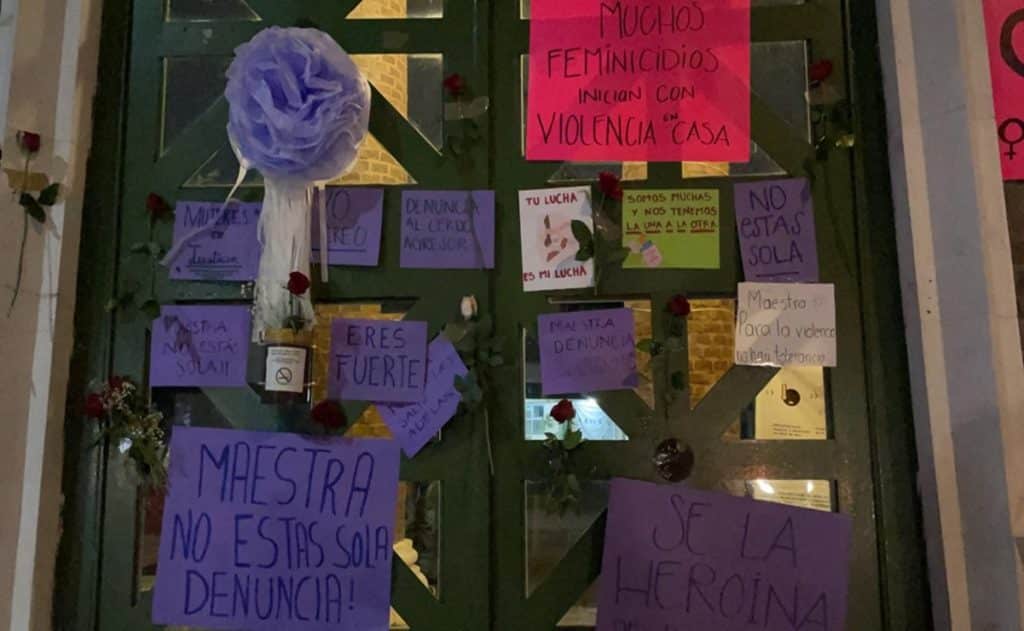 MUCHOS
FEMINICIDIOS
INICIAN CON
VIOLENCIA EN CASA
MUJERES
YO
DENUNCIA
AL CERDO
AGRESOR
TU LUCHA
ES MI LUCHA
SOMOS MUCHAS
Y NOS TENEMOS
LA UNA A LA OTRA
NO
ESTAS
SOLA
NO ESTÁ
SOLA!!
ERES
FUERTE
MAESTRA
DENUNCIA
Maestra
Para la violencia
no hay tolerancia
MAESTRA
NO ESTAS SOLA
DENUNCIA!
SE LA
HEROÍNA